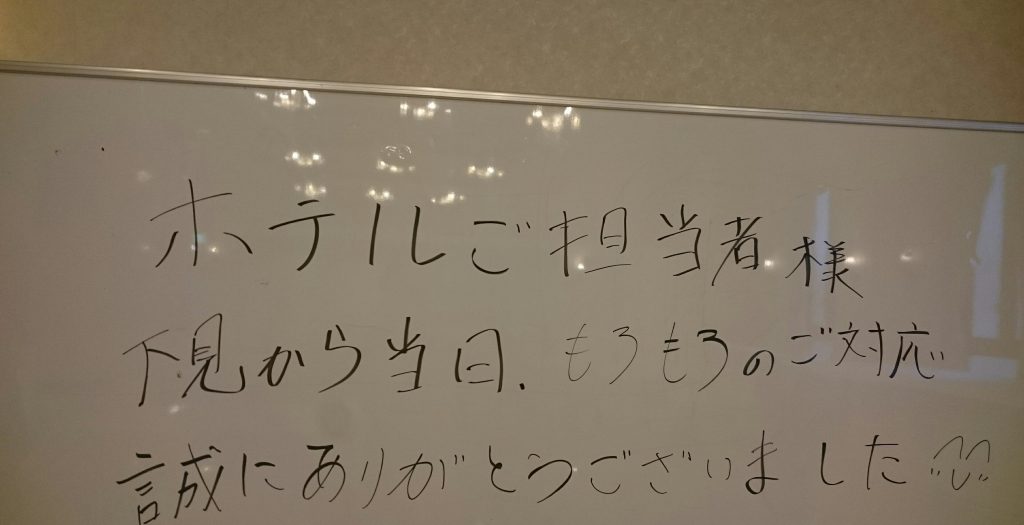 ホテルご担当者様
下見から当日、もろもろのご対応
誠にありがとうございました